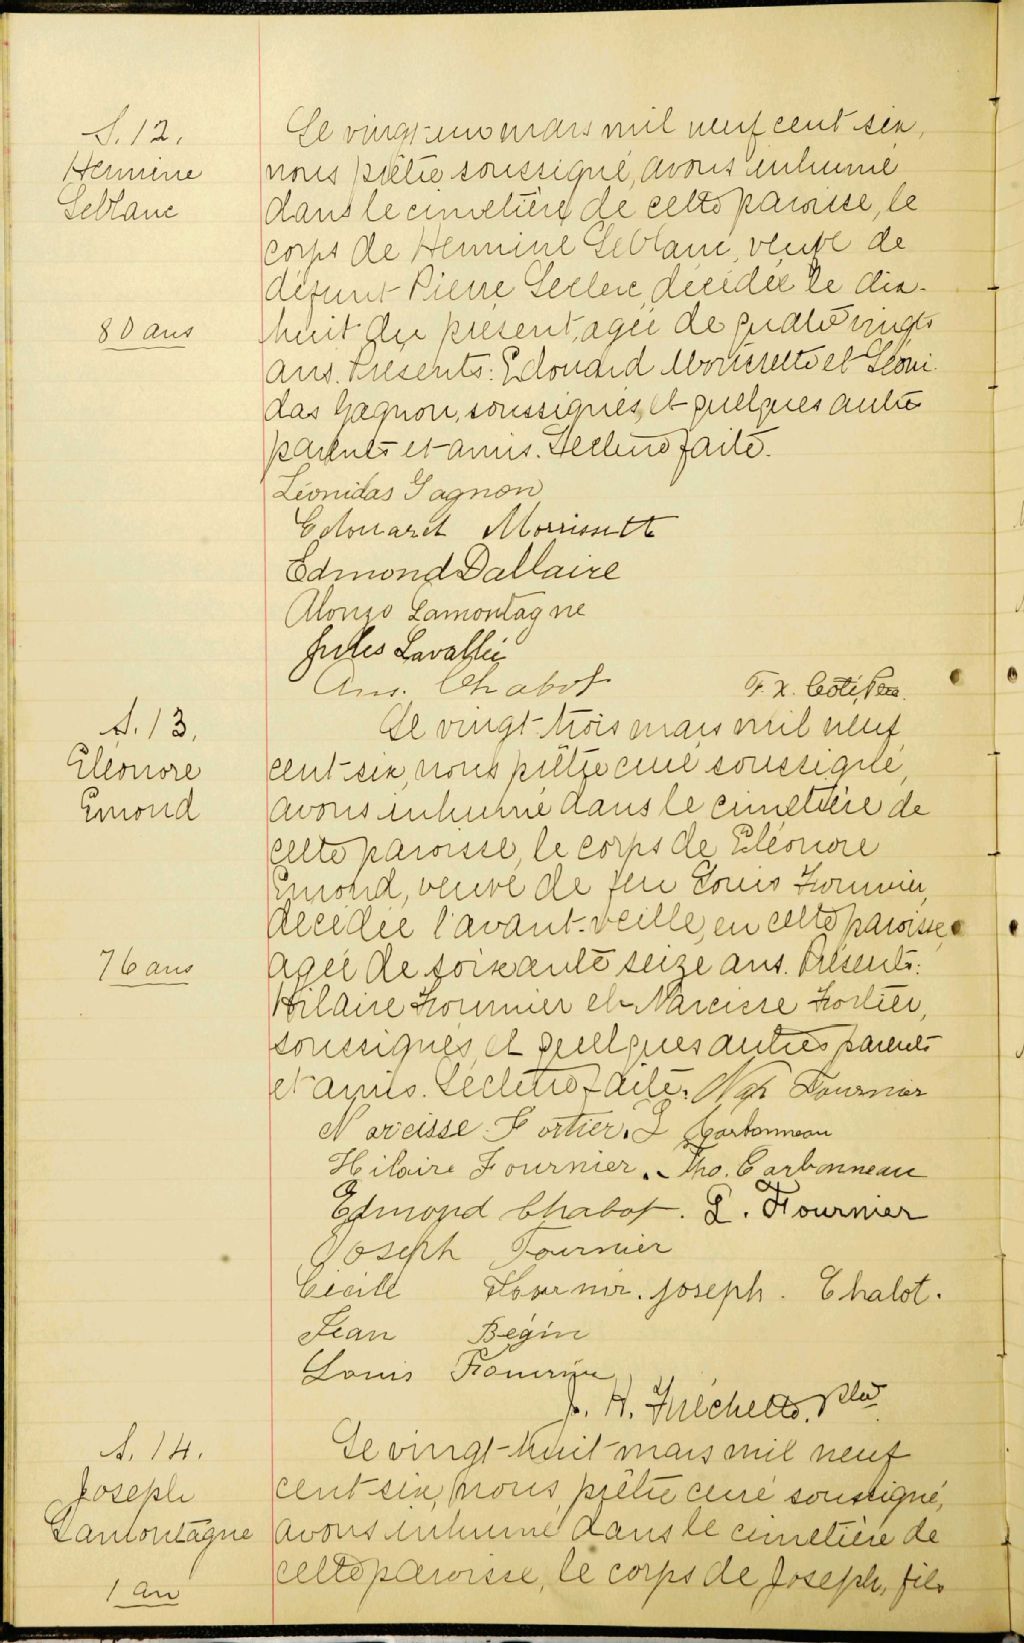 S. 12.
Hermine
Leblanc
80 ans
Le vingt-un mars mil neuf cent six,
nous prêtre soussigné, avons inhumé
dans le cimetière de cette paroisse, le
corps de Hermine Leblanc, veuve de
défunt Pierre Leclerc, décédée le dix-
huit du présent, agée de quatre vingts
ans. Présents: Edouard Morissette et Léoni-
das Gagnon, soussignés, et quelques autres
parents et amis. Lecture faite.
Léonidas Gagnon
Edouard Morrissette
Edmond Dallaire
Alonzo Lamontagne
Jules Lavallée
Ans. Chabot F. X. Coté, Ptre.
S. 13.
Eléonore
Emond
76 ans
Le vingt-trois mars mil neuf
cent-six, nous prêtre curé soussigné,
avons inhumé dans le cimetière de
cette paroisse, le corps de Eléonore
Emond, veuve de feu Louis Fournier,
décédée l'avant-veille, en cette paroisse,
agée de soixante seize ans. Présents:
Hilaire Fournier et Narcisse Fortier,
soussignés, et quelques autres parents
et amis. Lecture faite. Nap Fournier
Narcisse Fortier. L Carbonneau
Hilaire Fournier. Tho. Carbonneau
Edmond Chabot. P. Fournier
Joseph Fournier
Cécile Fournir. Joseph. Chabot.
Jean Bégin
Louis Fournier
J. H. Fréchette, Ptre
S. 14.
Joseph
Lamontagne
1 an
Le vingt-huit mars mil neuf
cent-six, nous, prêtre curé soussigné,
avons inhumé dans le cimetière de
cette paroisse, le corps de Joseph, fils